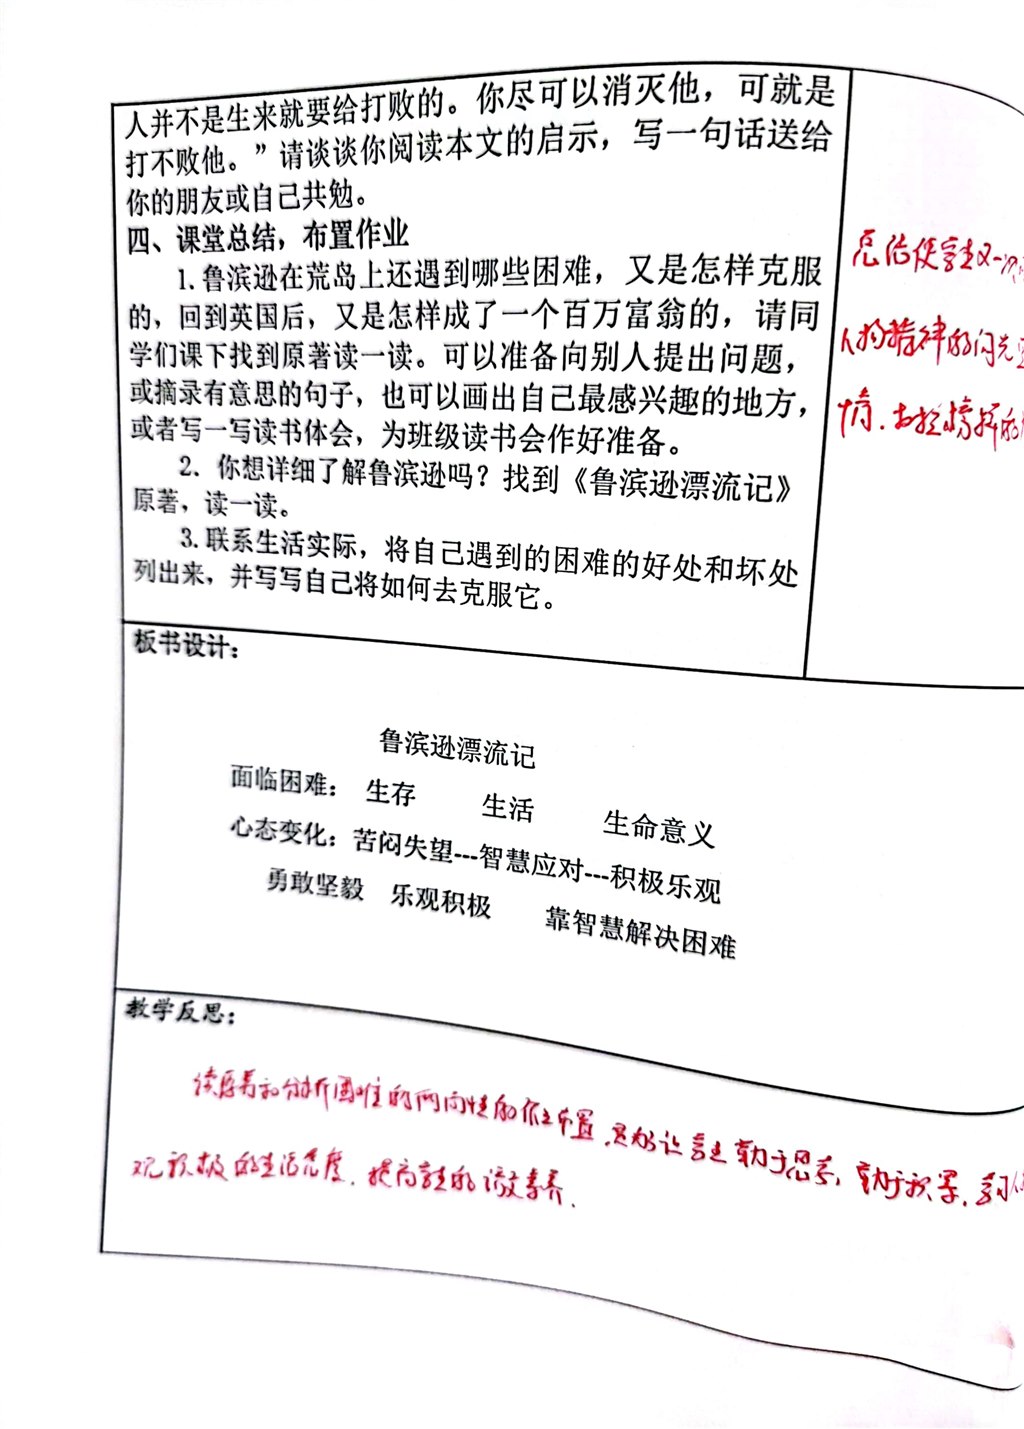 人并不是生来就要给打败的。你尽可以消灭他，可就是
打不败他。”请谈谈你阅读本文的启示，写一句话送给
你的朋友或自己共勉。
四、课堂总结，布置作业
1.鲁滨逊在荒岛上还遇到哪些困难，又是怎样克服
的，回到英国后，又是怎样成了一个百万富翁的，请同
学们课下找到原著读一读。可以准备向别人提出问题，
或摘录有意思的句子，也可以画出自己最感兴趣的地方，
或者写一写读书体会，为班级读书会作好准备。
2．你想详细了解鲁滨逊吗？找到《鲁滨逊漂流记》
原著，读一读。
3.联系生活实际，将自己遇到的困难的好处和坏处
列出来，并写写自己将如何去克服它。
总结使学生又一次
人物精神的闪光
情，
板书设计：
鲁滨逊漂流记
面临困难： 生存 生活 生命意义
心态变化：苦闷失望---智慧应对---积极乐观
勇敢坚毅 乐观积极 靠智慧解决困难
教学反思：
读原著和分析困难的两面性的作业布置，是为让学生勤于思考，勤于积累，
观积极的生活态度，提高学生的语文素养.